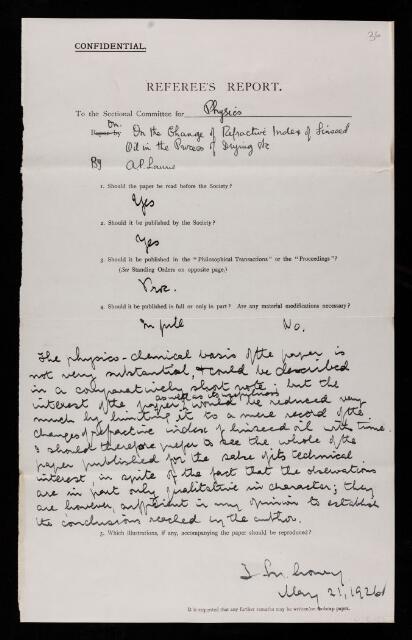 36
CONFIDENTIAL.
REFEREE'S REPORT.
To the Sectional Committee for Physics
On.
Report by On the Change of Refractive Index of Linseed
Oil in the Process of Drying &c
By A P Laurie
1. Should the paper be read before the Society?
Yes
2. Should it be published by the Society?
Yes
3. Should it be published in the "Philosophical Transactions" or the "Proceedings"?
(See Standing Orders on opposite page.)
Proc.
4. Should it be published in full or only in part? Are any material modifications necessary?
In full No.
The physico-chemical basis of the paper is
not very substantial, & could be described
in a comparatively short note; but the
as well as its usefulness
interest of the paper, would be reduced very
much by limiting it to a mere record of the
changes of refractive index of linseed oil with time.
I should therefore prefer to see the whole of the
paper published for the sake of its technical
interest, in spite of the fact that the observations
are in part only qualitative in character; they
are however, sufficient in my opinion to establish
the conclusions reached by the author.
5. Which illustrations, if any, accompanying the paper should be reproduced?
T M Lowry
May 21, 1926
It is requested that any further remarks may be written on foolscap paper.